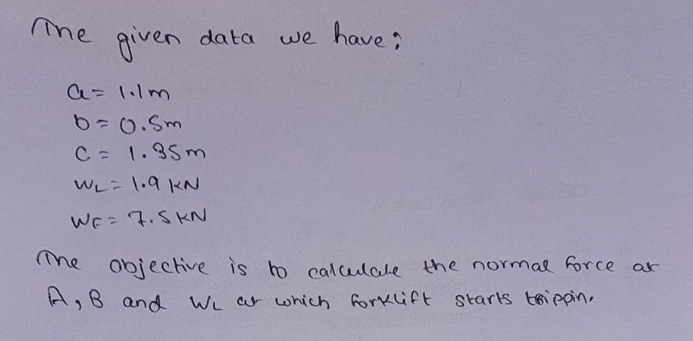 The given data we have;
a = 1.1m
b = 0.5m
c = 1.35m
WL = 1.9 KN
WF = 7.5 KN
The objective is to calculate the normal force at
A, B and WL at which forklift starts trippin.